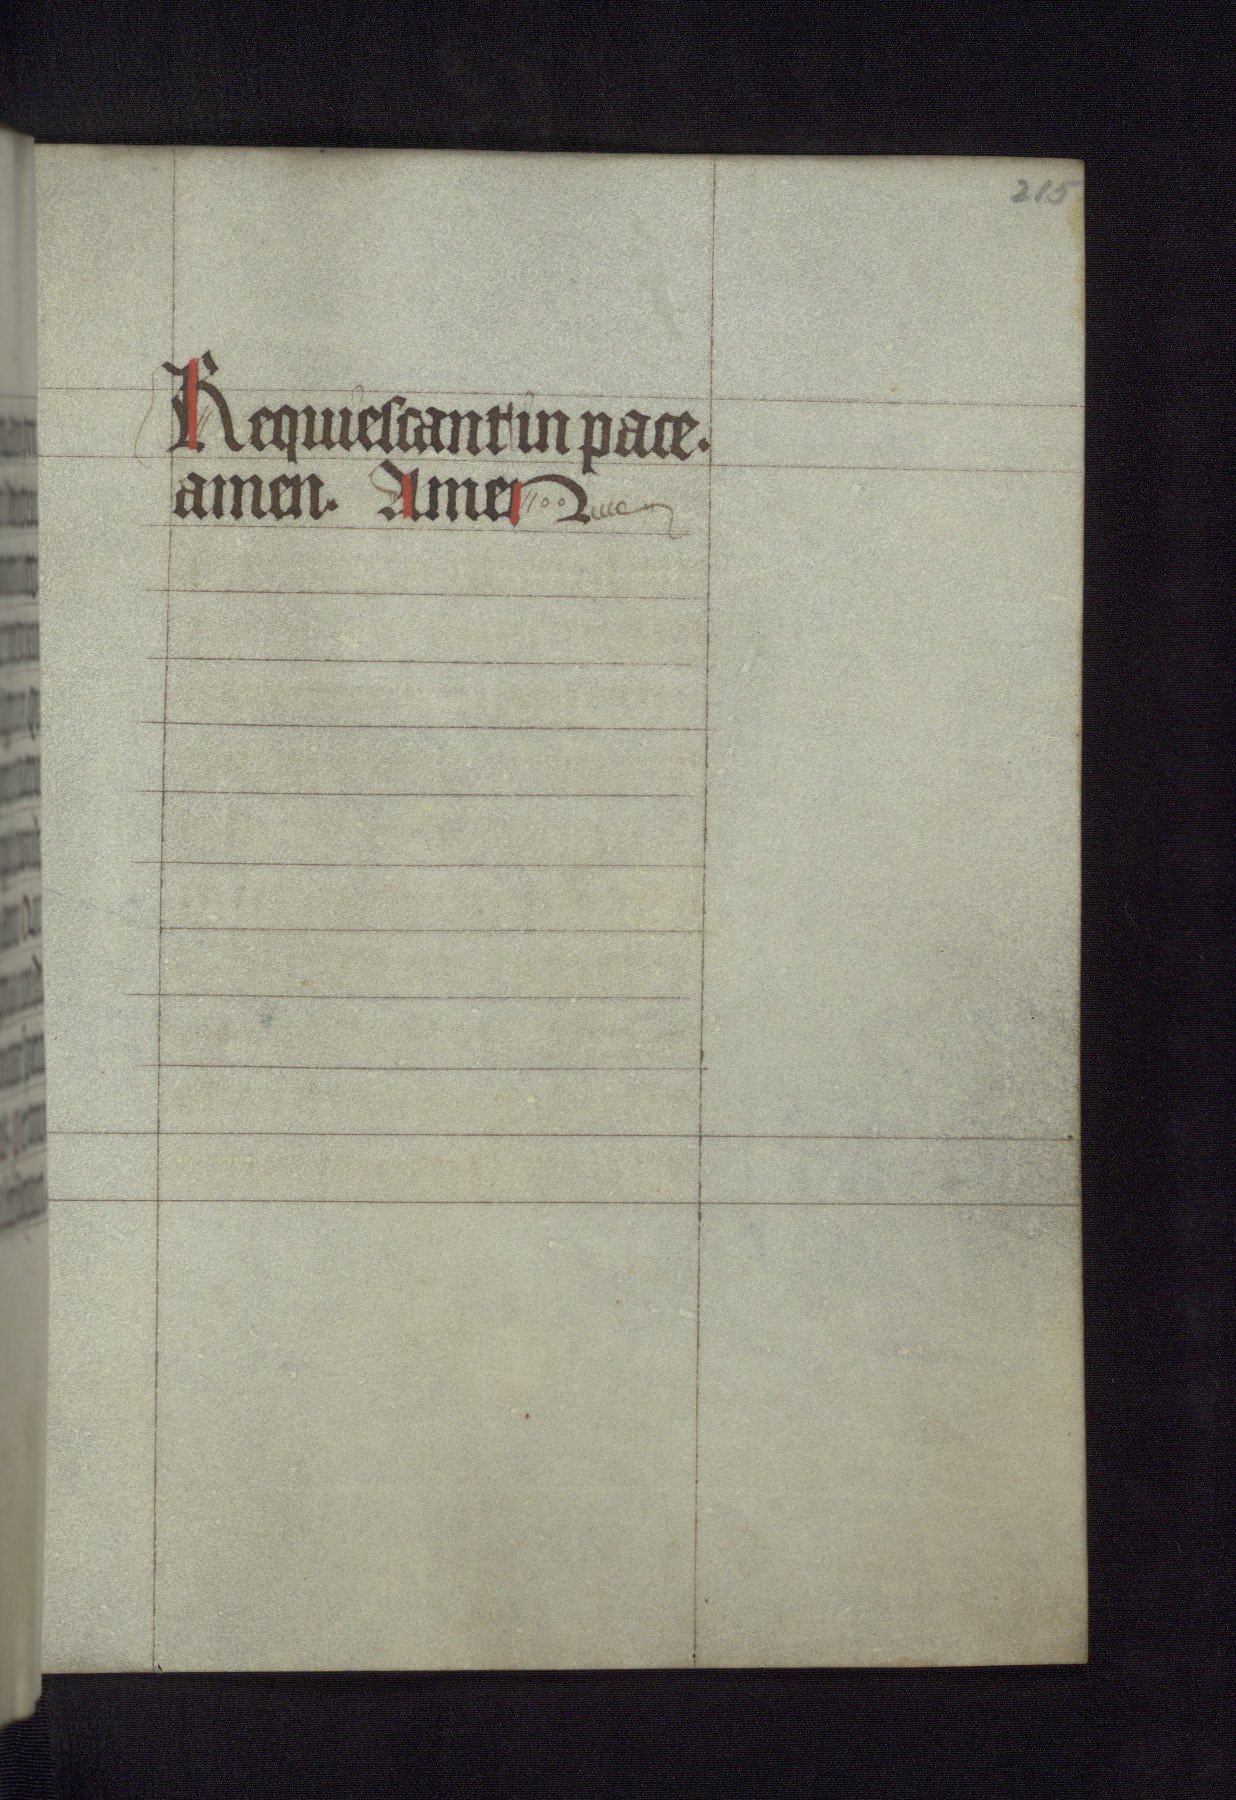 215
Requiescant in pace.
amen. Amen